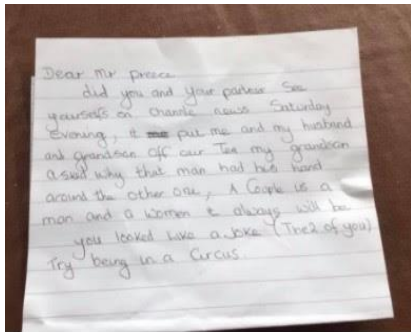 Dear Mr Preece
did you and your partner See
yourselfs on Channle news Saturday
Evening, it put me and my husband
and grandson off our Tea my grandson
asked why that man had his hand
around the other one, A Couple is a
man and a women & always will be
you looked like a Joke (The 2 of you)
Try being in a Circus.